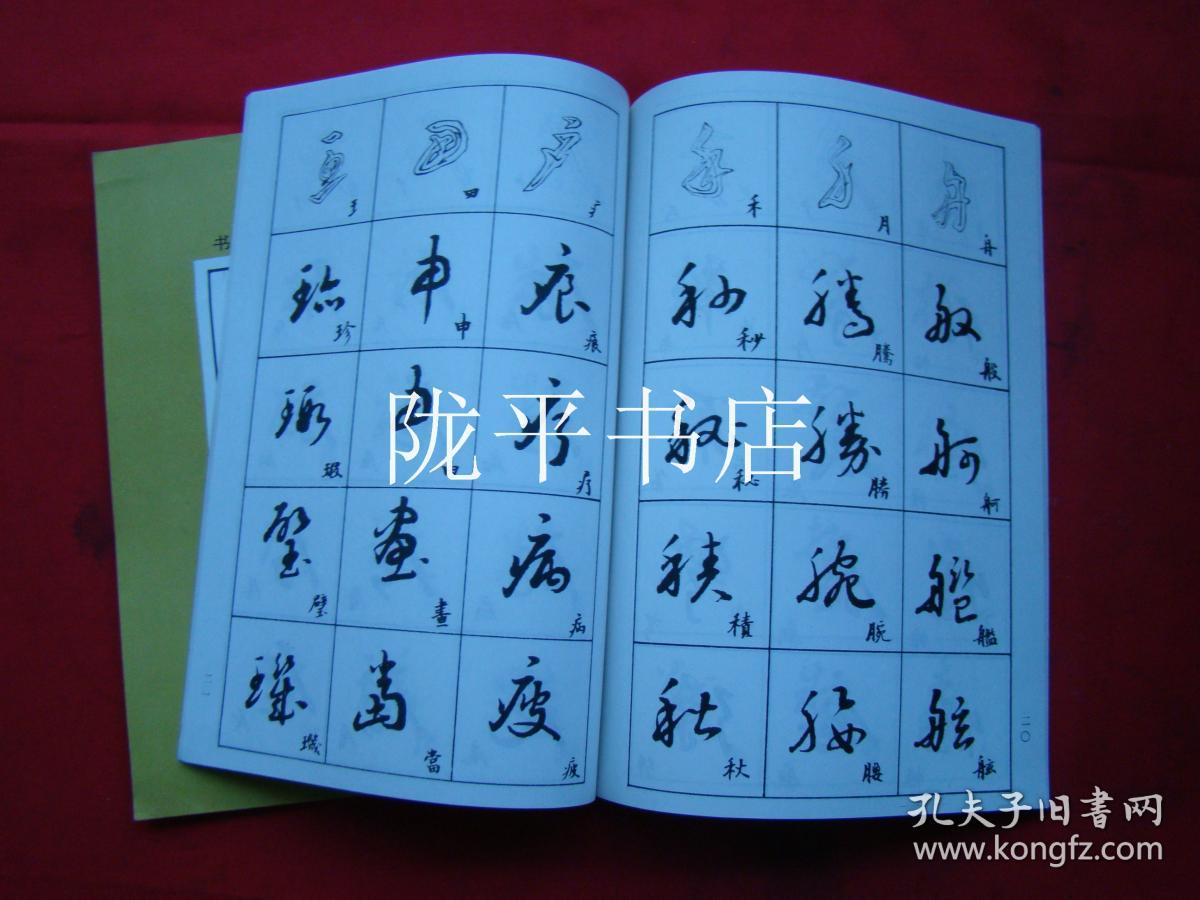 书
舟
般
舸
艦
舷
月
騰
勝
腕
腰
禾
秒
秘
積
秋
二〇
疒
痕
疗
病
疲
田
申
畫
當
王
珍
瑕
璧
璣
二一
陇平书店
孔夫子旧書网
www.kongfz.com